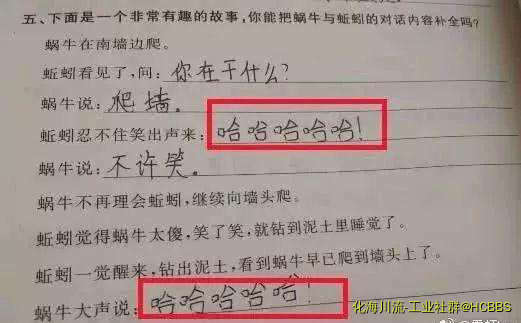 五、下面是一个非常有趣的故事,你能把蜗牛与蚯蚓的对话内容补全吗?
蜗牛在南墙边爬。
蚯蚓看见了,问:你在干什么?
蜗牛说:爬墙。
蚯蚓忍不住笑出声来:哈哈哈哈哈!
蜗牛说:不许笑。
蜗牛不再理会蚯蚓,继续向墙头爬。
蚯蚓觉得蜗牛太傻,笑了笑,就钻到泥土里睡觉了。
蚯蚓一觉醒来,钻出泥土,看到蜗牛早已爬到墙头上了。
蜗牛大声说:哈哈哈哈哈!
化海川流-工业社群@HCBBS